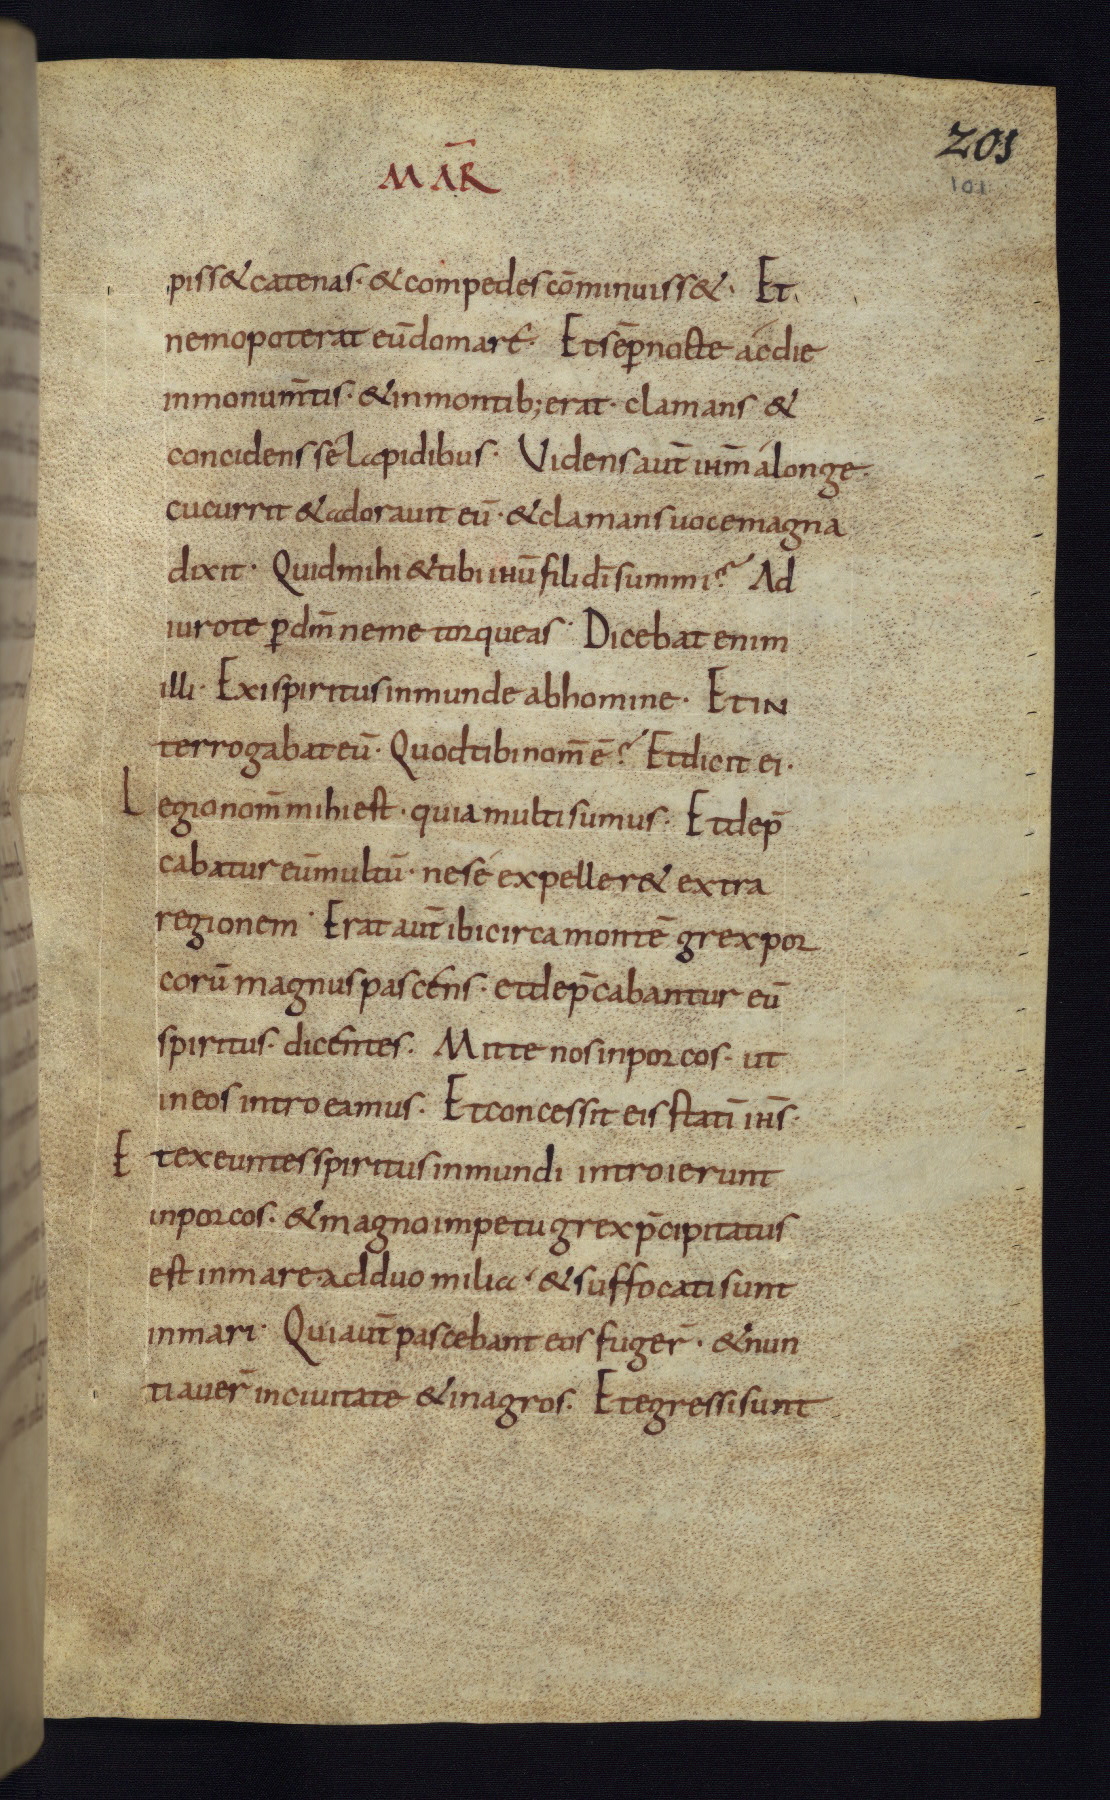 MAR̄
201
101
piss& catenas · & compedes cōminuiss& · Et
nemo poterat eū domare · Et semp̄ nocte ac die
in monum̄tis · & in montib; erat · clamans &
concidens se lapidibus · Videns aut̄ ihm̄ a longe ·
cucurrit & adorauit eū · & clamans uoce magna
dixit · Quid mihi & tibi ihū fili dī summi? Ad
iuro te p̄ dm̄ ne me torqueas · Dicebat enim
illi · Exi spiritus inmunde ab homine · Et in
terrogabat eū · Quod tibi nom̄ ē? Et dicit ei ·
Legio nom̄ mihi est · quia multi sumus · Et dep̄
cabatur eū multū · ne se expeller& extra
regionem · Erat aut̄ ibi circa montē grex por
corū magnus pascens · et dep̄cabantur eū
spiritus · dicentes · Mitte nos in porcos · ut
in eos introeamus · Et concessit eis statī ihs̄ ·
Et exeuntes spiritus inmundi introierunt
in porcos · & magno impetu grex p̄cipitatus
est in mare · ad duo milia · & suffocati sunt
in mari · Qui aut̄ pascebant eos fuger̄ · & nun
tiauer̄ in ciuitate & in agros · Et egressi sunt